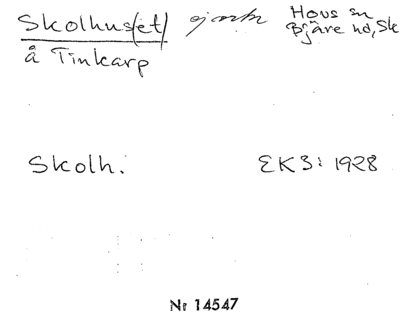 Skolhus(et) ej anm Hovs sn
Bjäre hd, Sk
å Tinkarp
Skolh. EK3: 1928
Nr 14547